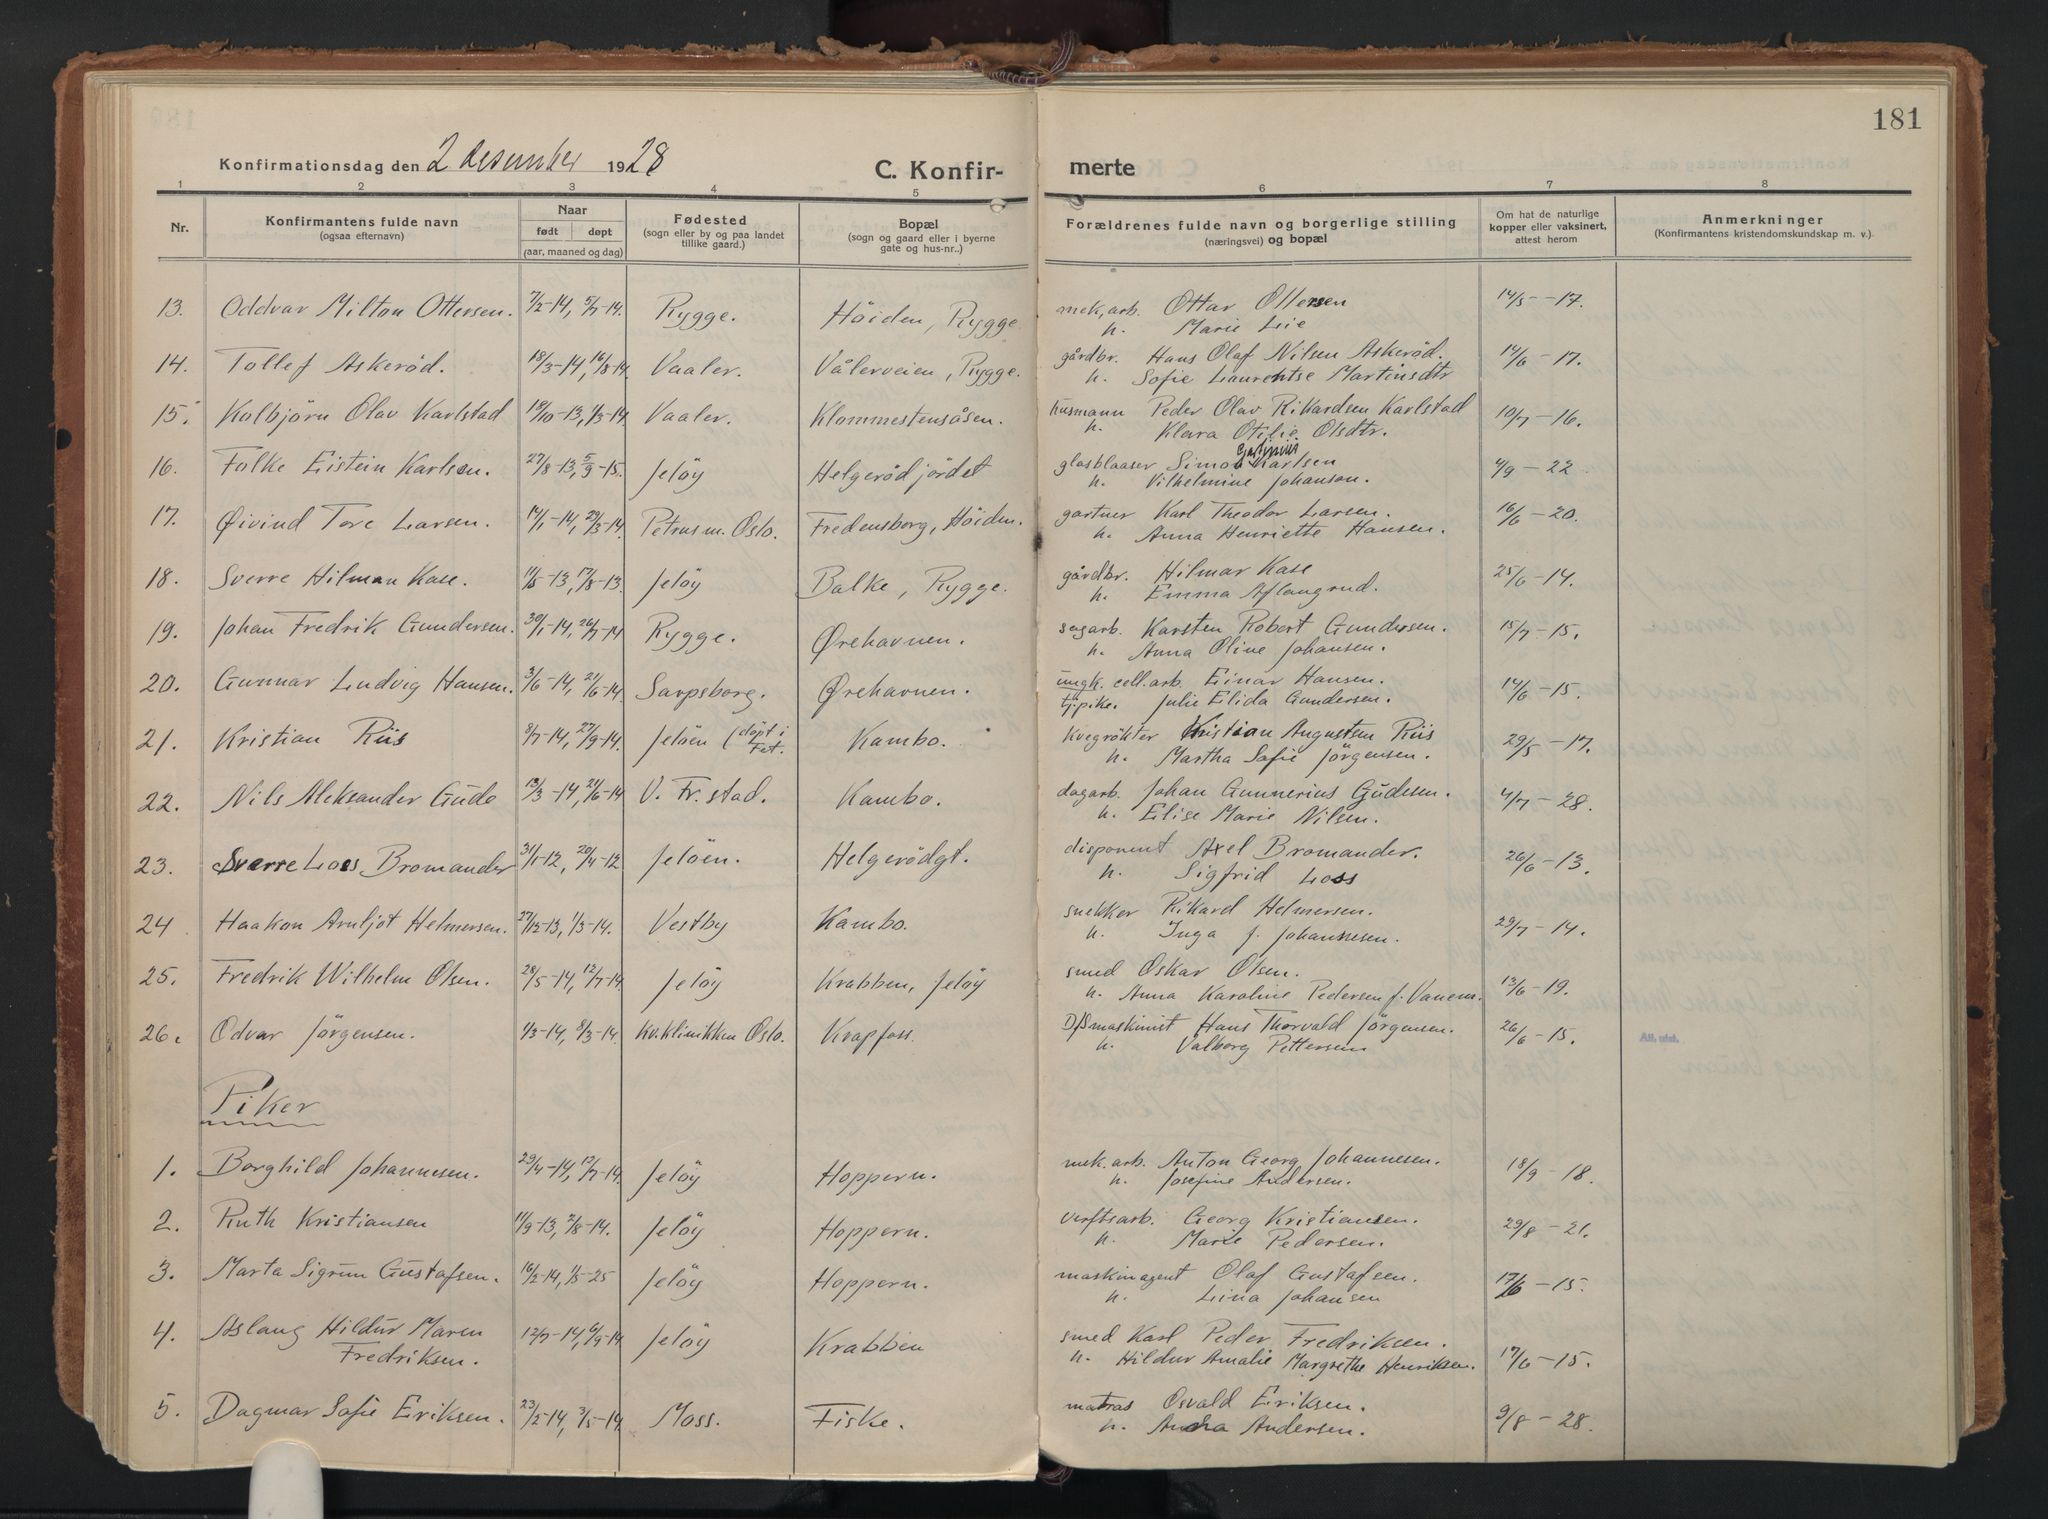 181
Konfirmationsdag den 2 desember 1928
C. Konfir-
merte
1 2 3 4 5 6 7 8
Nr.
Konfirmantens fulde navn
(ogsaa efternavn)
Naar
født døpt
(aar, maaned og dag)
Fødested
(sogn eller by og paa landet
tillike gaard.)
Bopæl
(sogn og gaard eller i byerne
gate og hus-nr..)
Forældrenes fulde navn og borgerlige stilling
(næringsvei) og bopæl
Om hat de naturlige
kopper eller vaksinert,
attest herom
Anmerkninger
(Konfirmantens kristendomskundskap m. v.)
13. Oddvar Milton Ottersen. 7/2-14, 5/7-14. Rygge. Höiden, Rygge. mek,arb. Ottar Ottersen 14/5-17.
h. Marie Lie
14. Tollef Askeröd. 18/3-14, 16/8-14. Vaaler. Vålerveien, Rygge. gårdbr. Hans Olaf Nilsen Askeröd. 14/6-17.
h. Sofie Laurentse Martinsdtr
15. Kolbjörn Olav Karlstad 19/10-13, 1/3-14. Vaaler. Klommestensåsen. husmann Peder Olav Rikardsen Karlstad 10/7-16.
h. Klara Otilie Olsdtr.
16. Folke Eistein Karlsen. 27/8-13, 5/9-15. Jelöy Helgerödjördet glasblaaser Simon Karlsen 4/9-22
h. Vilhelmine Johanson.
17. Øivind Tore Larsen. 14/1-14, 29/3-14. Petrus m. Oslo. Fredensborg, Höiden. gartner Karl Theodor Larsen. 16/6-20.
h. Anna Henriette Hansen.
18. Sverre Hilman Kase. 11/5-13, 17/8-13. Jelöy Balke, Rygge. gårdbr. Hilmar Kase 25/6-14.
h. Emma Aflangrud.
19. Johan Fredrik Gundersen. 30/1-14, 26/7-14 Rygge. Ørehavnen. sagarb. Karsten Robert Gundersen. 15/7-15.
h. Anna Oline Johansen.
20. Gunnar Ludvig Hansen. 3/6-14, 21/6-14. Sarpsborg. Ørehavnen. ungk. cell.arb. Einar Hansen. 14/6-15.
tj.pike. Julie Elida Gundersen.
21. Kristian Riis 8/7-14, 27/9-14. Jelöen (döpt i Fet. Kambo. kvegrökter Kristian Augustsen Riis 29/5-17.
h. Martha Sofie Jörgensen.
22. Nils Aleksander Gude 13/3-14, 21/6-14 V. Fr.stad. Kambo. dagarb. Johan Gunnerius Gudesen. 4/7-28.
h. Elise Marie Nilsen.
23. Sverre Loss Bromander 31/1-12, 20/4-12 Jelöen. Helgerödgt. disponent Axel Bromander. 26/6-13.
h. Sigfrid Loss
24 Haakon Arnljot Helmersen. 27/12-13, 1/3-14. Vestby Kambo. snekker Rikard Helmersen. 29/7-14.
h. Inga J. Johannesen.
25. Fredrik Wilhelm Olsen. 28/5-14, 12/7-14. Jelöy Krabben, Jelöy smed Oskar Olsen. 13/6-19.
h. Anna Karoline Pedersen f. Vanem.
26. Odvar Jörgensen. 1/3-14, 8/3-14. Kv.klinikken Oslo. Krapfoss. D/Smaskinist Hans Thorvald Jörgensen. 26/6-15. Att. utst.
h. Valborg Pettersen
Piker
1. Borghild Johannesen. 29/4-14, 12/7-14. Jelöy Hoppern. mek.arb. Anton Georg Johannesen. 18/9-18.
h. Josefine Andersen.
2. Ruth Kristiansen 11/9-13, 2/8-14. Jelöy Hoppern. verftsarb. Georg Kristiansen. 29/8-21.
h. Marie Pedersen.
3. Marta Sigrun Gustafsen. 16/2-14, 1/5-25 Jelöy Hoppern. maskinagent Olaf Gustafsen. 17/6-15.
h. Lina Johansen
4. Aslaug Hildur Maren 12/7-14, 6/9-14 Jelöy Krabben smed Karl Peder Fredriksen. 17/6-15.
Fredriksen. h. Hildur Amalie Margrethe Henriksen.
5. Dagmar Sofie Eriksen. 23/2-14, 3/5-14. Moss. Fiske. matros Osvald Eriksen. 9/8-28.
h. Anna Andersen.